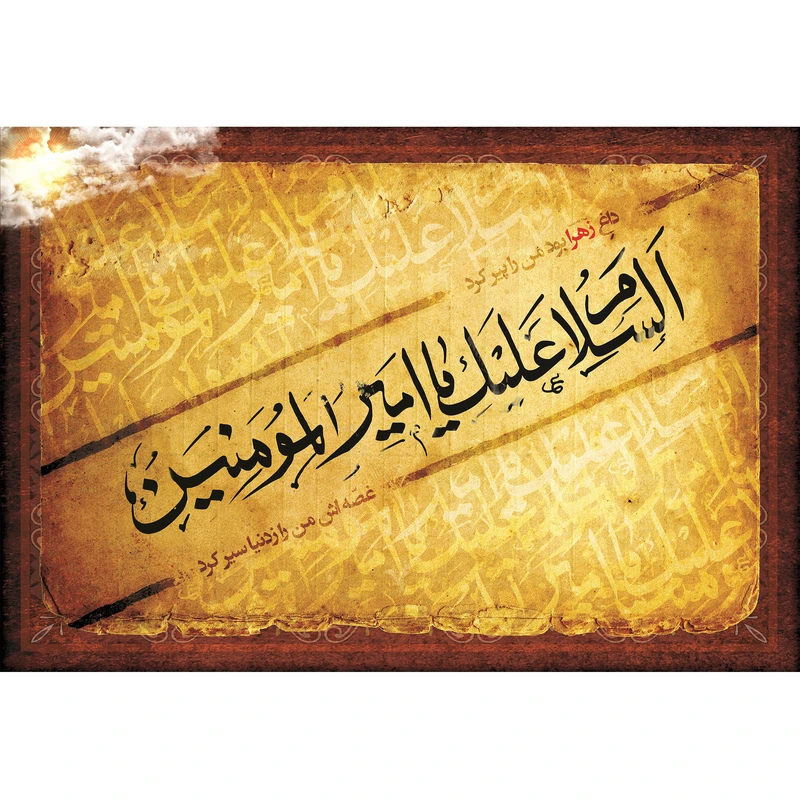 داغ زهرا بود من را پیر کرد
السلام علیک یا امیر المؤمنین
غصه اش من را زدنیا سیر کرد